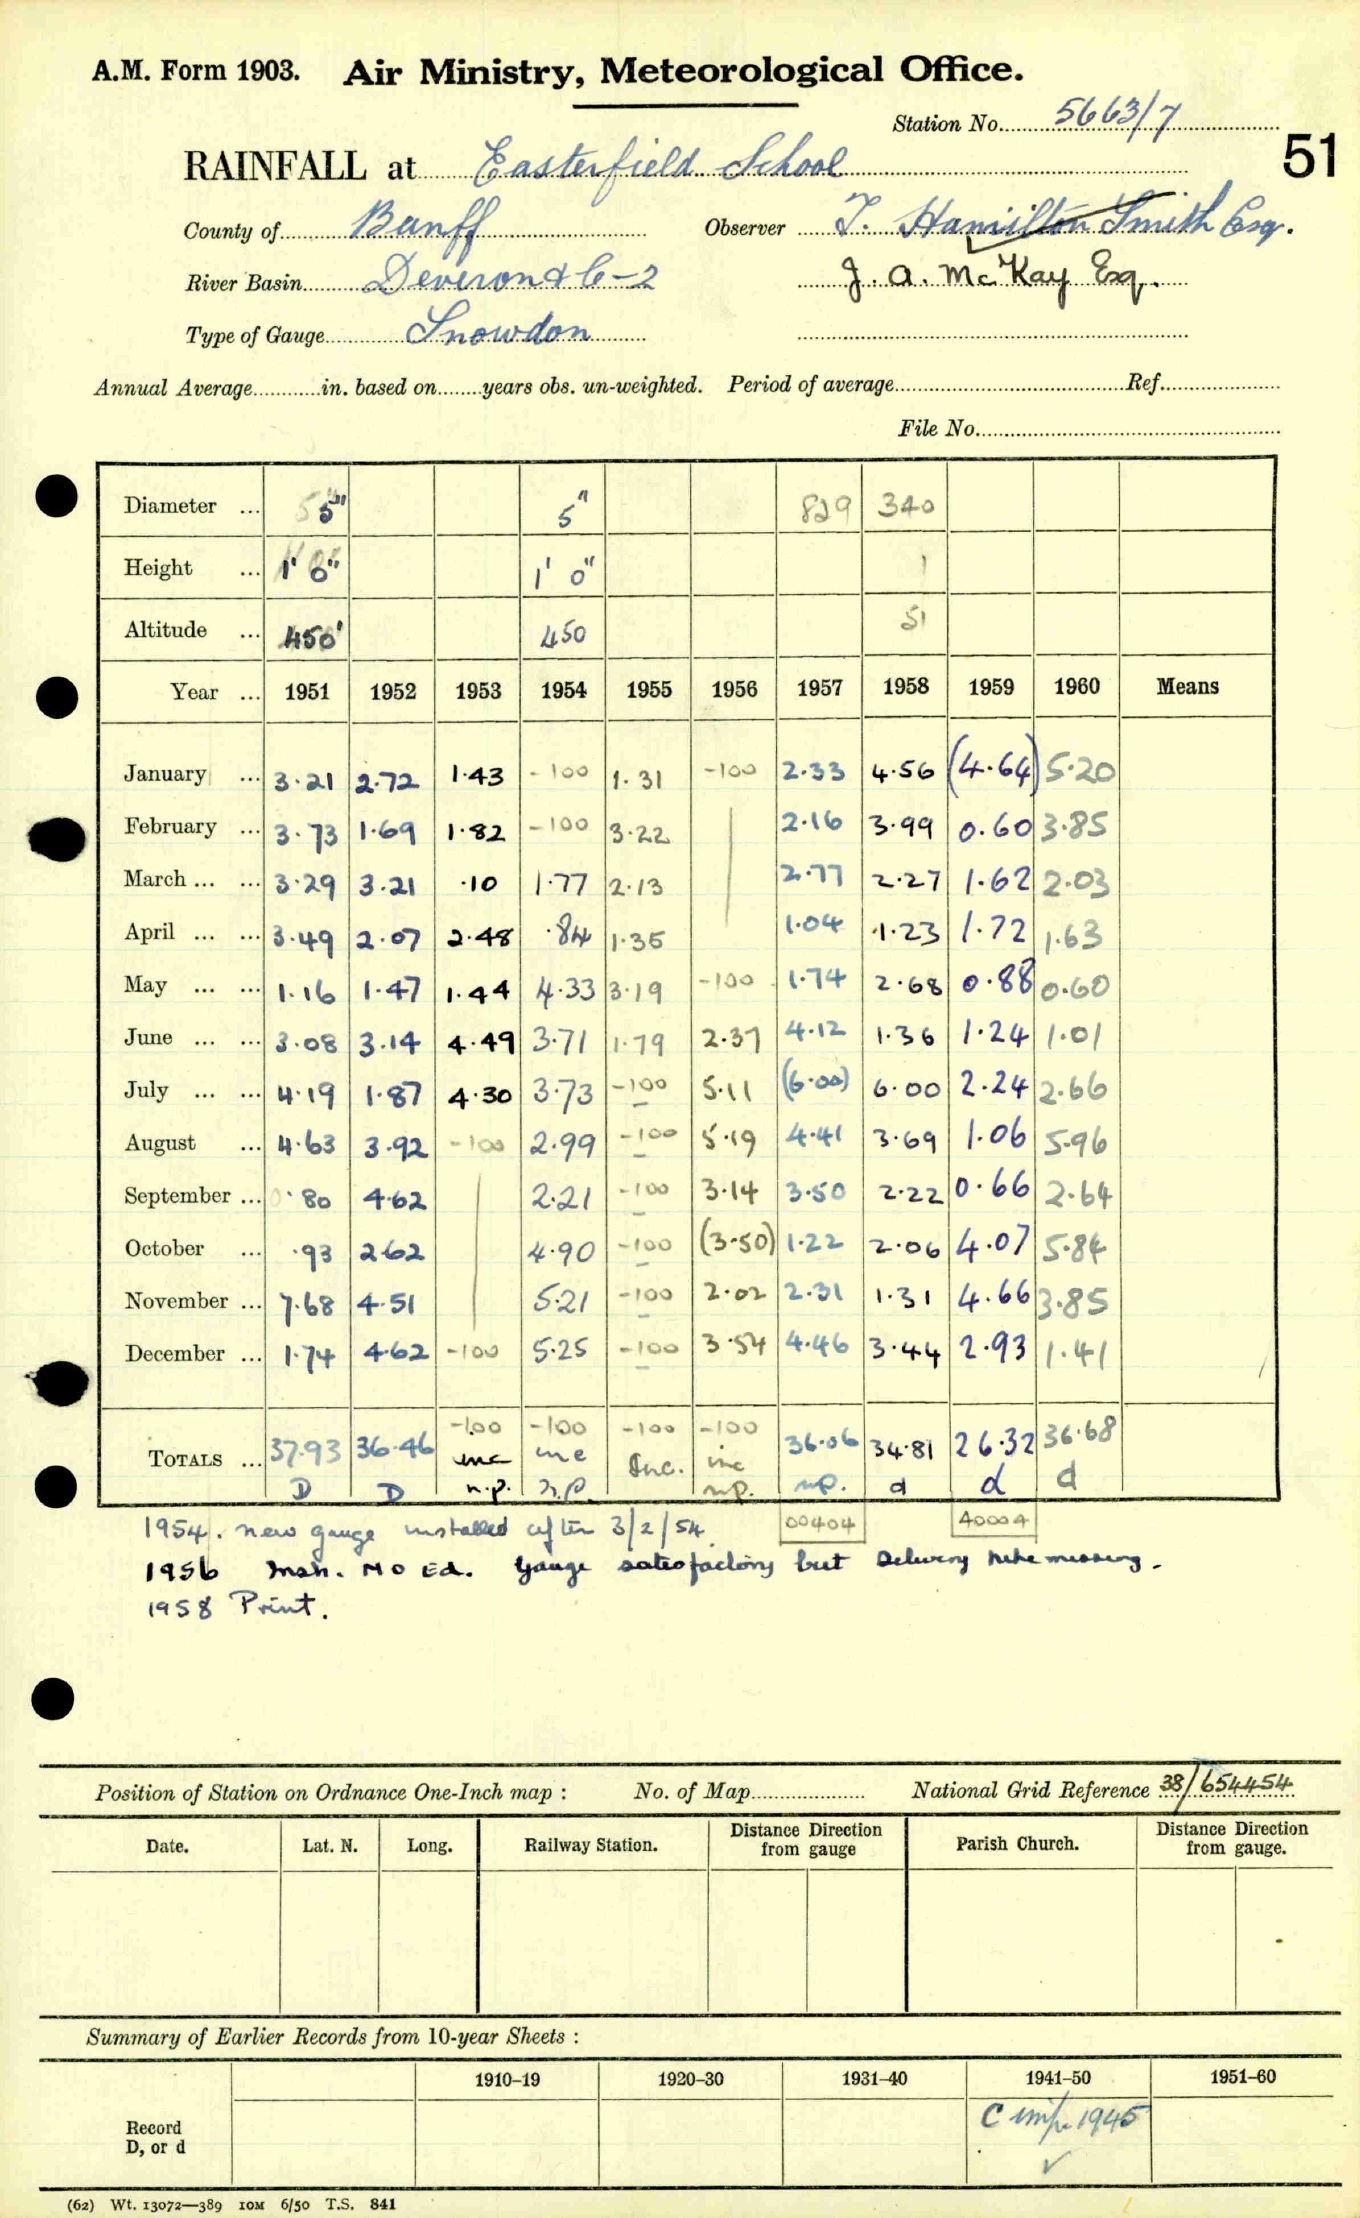 A.M. Form 1903. Air Ministry, Meteorological Office.
Station No. 5663/7
51
RAINFALL at Easterfield School
County of Banff Observer T. Hamilton Smith Esq.
River Basin Deveron & C-2 J. A. McKay Esq.
Type of Gauge Snowdon
Annual Average in. based on years obs. un-weighted. Period of average Ref.
File No.
Diameter ... 5" 5" 829 340
Height ... 1' 0" 1' 0" 1
Altitude ... 450' 450 51
Year ... 1951 1952 1953 1954 1955 1956 1957 1958 1959 1960 Means
January ... 3.21 2.72 1.43 -100 1.31 -100 2.33 4.56 (4.64) 5.20
February ... 3.73 1.69 1.82 -100 3.22 2.16 3.99 0.60 3.85
March ... ... 3.29 3.21 .10 1.77 2.13 2.77 2.27 1.62 2.03
April ... ... 3.49 2.07 2.48 .84 1.35 1.04 1.23 1.72 1.63
May ... ... 1.16 1.47 1.44 4.33 3.19 -100 1.74 2.68 0.88 0.60
June ... ... 3.08 3.14 4.49 3.71 1.79 2.37 4.12 1.36 1.24 1.01
July ... ... 4.19 1.87 4.30 3.73 -100 5.11 (6.00) 6.00 2.24 2.66
August ... 4.63 3.92 -100 2.99 -100 5.19 4.41 3.69 1.06 5.96
September ... 0.80 4.62 2.21 -100 3.14 3.50 2.22 0.66 2.64
October ... .93 2.62 4.90 -100 (3.50) 1.22 2.06 4.07 5.84
November ... 7.68 4.51 5.21 -100 2.02 2.31 1.31 4.66 3.85
December ... 1.74 4.62 -100 5.25 -100 3.54 4.46 3.44 2.93 1.41
-100 -100 -100 -100
TOTALS ... 37.93 36.46 inc inc Inc. inc 36.06 34.81 26.32 36.68
D D n.p. n.p. n.p. n.p. d d d
1954. new gauge installed after 3/2/54 00404 40004
1956 Insn. M O Ed. Gauge satisfactory but Delivery tube missing.
1958 Print.
Position of Station on Ordnance One-Inch map : No. of Map National Grid Reference 38/654454
Date. Lat. N. Long. Railway Station. Distance from gauge Direction Parish Church. Distance from gauge. Direction
Summary of Earlier Records from 10-year Sheets :
1910–19 1920–30 1931–40 1941–50 1951–60
Record D, or d C 1945
(62) Wt. 13072—389 10M 6/50 T.S. 841